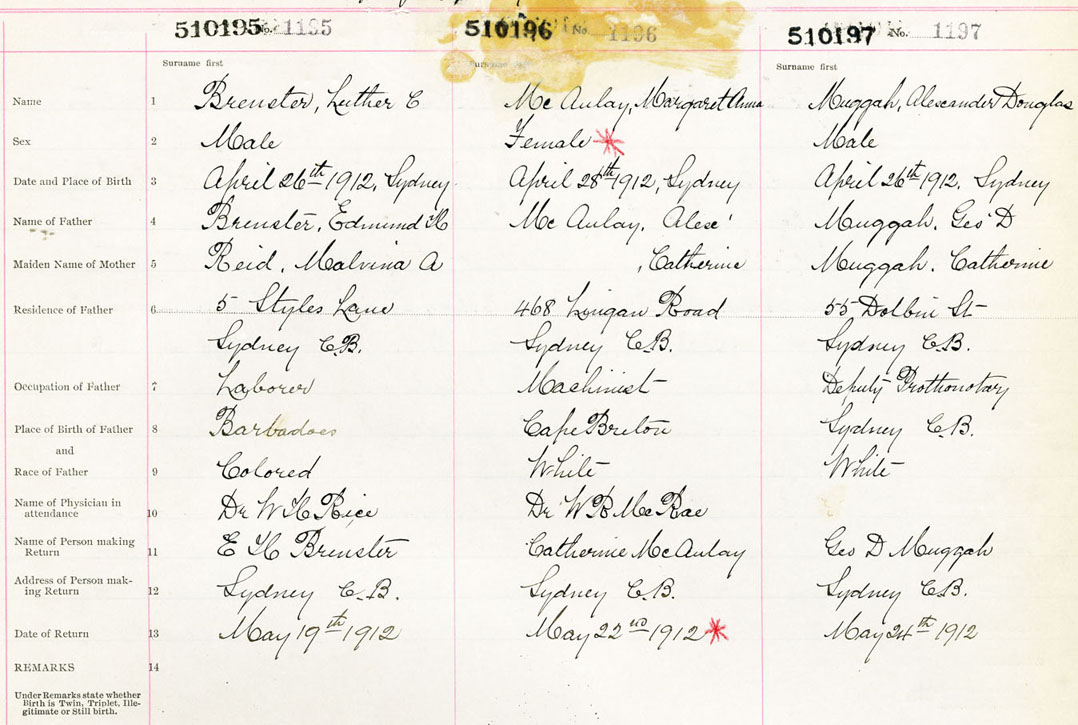 510195 No. 1195 510196 No. 1196 510197 No. 1197
Surname first Surname first Surname first
Name 1 Brewster, Luther C Mc Aulay, Margaret Anna Muggah, Alexander Douglas
Sex 2 Male Female Male
Date and Place of Birth 3 April 26th 1912, Sydney April 28th 1912, Sydney April 26th 1912, Sydney
Name of Father 4 Brewster, Edmund H Mc Aulay, Alex' Muggah, Geo D
Maiden Name of Mother 5 Reid, Malvina A , Catherine Muggah, Catherine
Residence of Father 6 5 Styles Lane 468 Lingan Road 55 Dolbin St
Sydney C.B. Sydney C.B. Sydney C.B.
Occupation of Father 7 Laborer Machinist Deputy Prothonotary
Place of Birth of Father 8 Barbadoes Cape Breton Sydney C.B.
and
Race of Father 9 Colored White White
Name of Physician in
attendance 10 Dr W H Rice Dr W R McRae
Name of Person making
Return 11 E H Brewster Catherine McAulay Geo D Muggah
Address of Person mak-
ing Return 12 Sydney C.B. Sydney C.B. Sydney C.B.
Date of Return 13 May 19th 1912 May 22nd 1912 May 24th 1912
REMARKS 14
Under Remarks state whether
Birth is Twin, Triplet, Ille-
gitimate or Still birth.